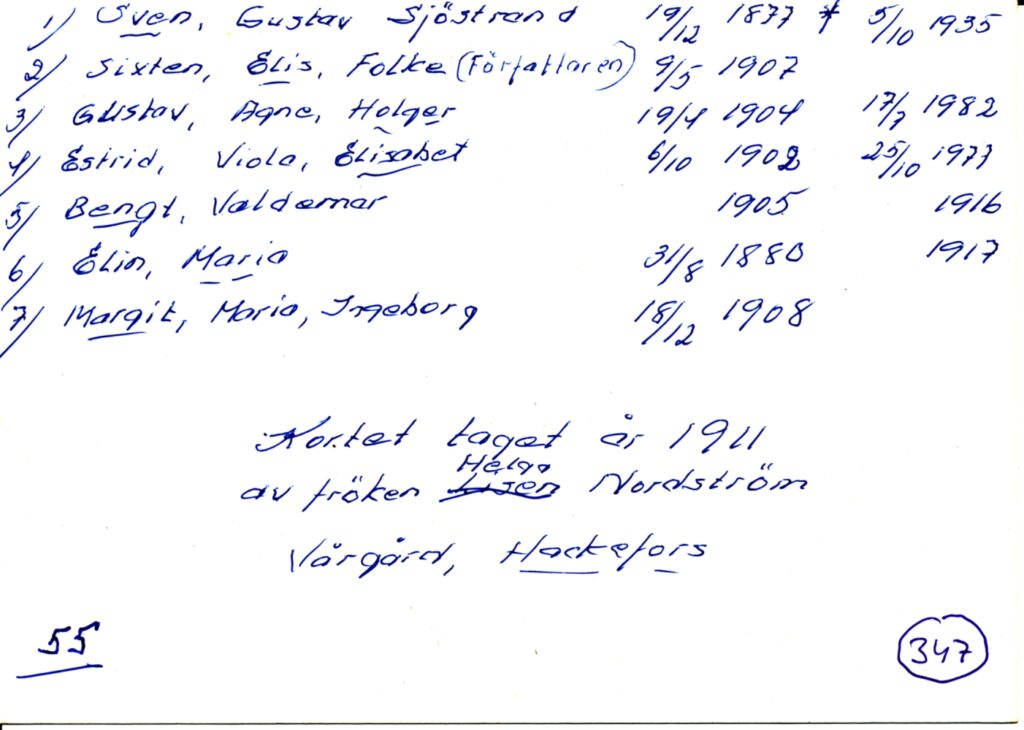 1) Sven, Gustav Sjöstrand 19/12 1877 * 5/10 1935
2) Sixten, Elis, Folke (Författaren) 9/5 1907
3) Gustav, Agne, Holger 19/4 1904 17/7 1982
4) Estrid, Viola, Elisabet 6/10 1902 25/10 1977
5) Bengt, Valdemar 1905 1916
6) Elin, Maria 31/8 1880 1917
7) Margit, Maria, Ingeborg 18/12 1908
Kortet taget år 1911
Helga
av fröken Lisen Nordström
Vårgård, Hackefors
55
347